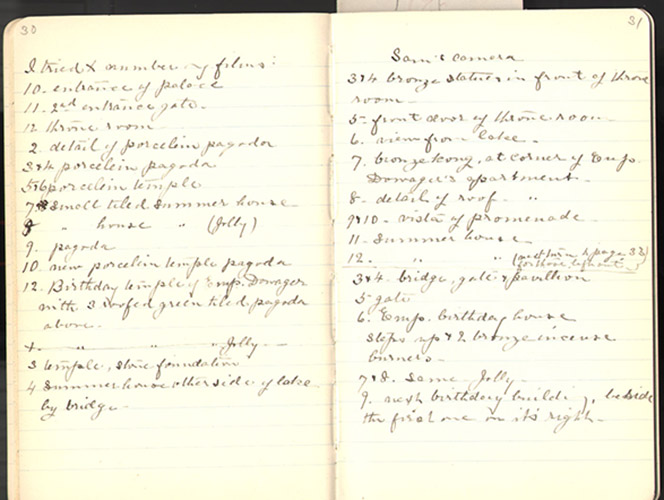 30
I tried & number of films:
10. entrance of palace
11. 2nd entrance gate.
12 throne room
2. detail of porcelein pagoda
3&4 porcelein pagoda
5&6 porcelein temple
7&8 small tiled summer house
8 " house " (Jolly)
9. pagoda
10. new porcelein temple pagoda
12. Birthday temple of Emp. Dowager
with 3 roofed green tiled pagoda
above.
" " " Jolly
3 temple, stone foundation
4 Summer house other side of lake
by bridge
31
Sam's camera
3&4 bronze statues in front of throne
room
5. front door of throne room
6. view from lake.
7. bronze kong, at corner of Emp.
Dowager's apartment.
8. detail of roof. "
9&10. vista of promenade
11. Summer house
12. " " (page 33)
3&4. bridge, gate & pavilion
5 gate
6. Emp. birthday house
steps up & 2 bronze incense
burners.
7&8. Same Jolly
9. next birthday building, beside
the first one on its right.